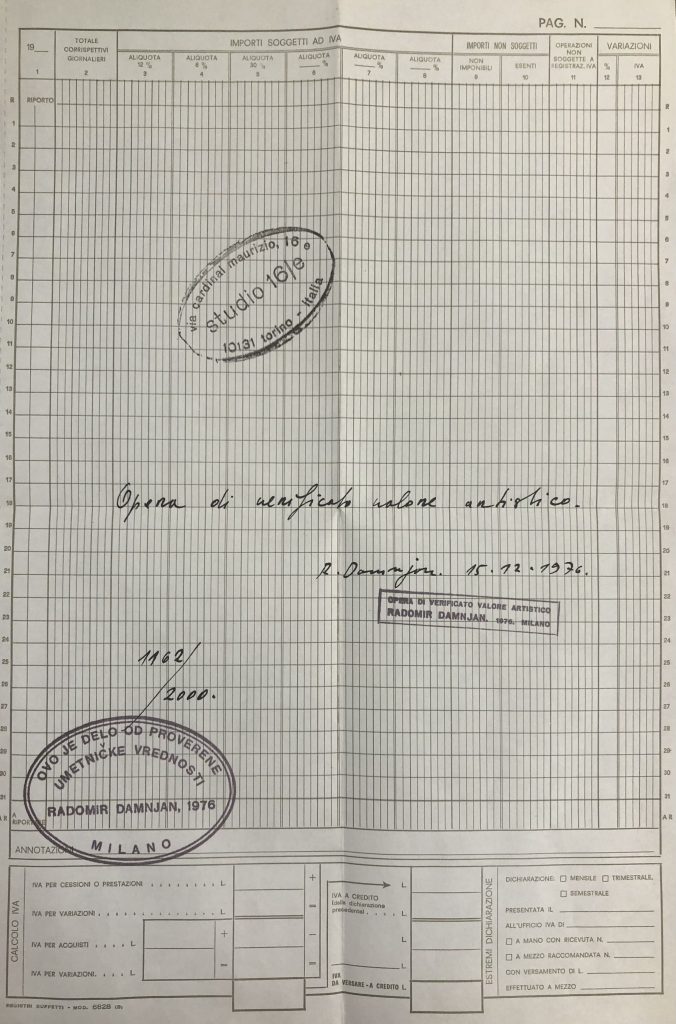 PAG. N.
19
TOTALE CORRISPETTIVI GIORNALIERI
IMPORTI SOGGETTI AD IVA
IMPORTI NON SOGGETTI
OPERAZIONI NON SOGGETTE A REGISTRAZ. IVA
VARIAZIONI
ALIQUOTA 12 %
ALIQUOTA 6 %
ALIQUOTA 30 %
ALIQUOTA %
ALIQUOTA %
ALIQUOTA %
NON IMPONIBILI
ESENTI
%
IVA
1 2 3 4 5 6 7 8 9 10 11 12 13
R RIPORTO R
1 1
2 2
3 3
4 4
5 5
6 6
7 7
8 8
9 9
10 10
11 11
12 12
13 13
14 14
15 15
16 16
17 17
18 18
19 19
20 20
21 21
22 22
23 23
24 24
25 25
26 26
27 27
28 28
29 29
30 30
31 31
A R A RIPORTARE A R
via cardinal maurizio, 16 e
studio 16/e
10131 torino - italia
Opera di verificato valore artistico.
R. Damnjan. 15.12.1976.
OPERA DI VERIFICATO VALORE ARTISTICO
RADOMIR DAMNJAN. 1976. MILANO
1162/2000.
OVO JE DELO OD PROVERENE
UMETNIČKE VREDNOSTI
RADOMIR DAMNJAN, 1976
MILANO
ANNOTAZIONI
CALCOLO IVA
IVA PER CESSIONI O PRESTAZIONI L. +
IVA PER VARIAZIONI L. =
IVA PER ACQUISTI L. + −
IVA PER VARIAZIONI. L. = =
L.
IVA A CREDITO
(della dichiarazione
precedente) L.
L.
L.
IVA
DA VERSARE - A CREDITO L.
ESTREMI DICHIARAZIONE
DICHIARAZIONE: MENSILE TRIMESTRALE,
SEMESTRALE
PRESENTATA IL
ALL'UFFICIO IVA DI
A MANO CON RICEVUTA N.
A MEZZO RACCOMANDATA N.
CON VERSAMENTO DI L.
EFFETTUATO A MEZZO
REGISTRI BUFFETTI - MOD. 6828 (R)